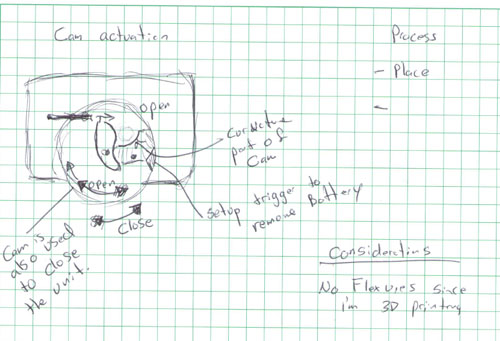 Cam actuation
Process
- Place
-
open
Conductive
part of
Cam
open
setup trigger to
remove Battery
close
Cam is
also used
to close
the unit.
Considerations
No Flexures since
i'm 3D printing